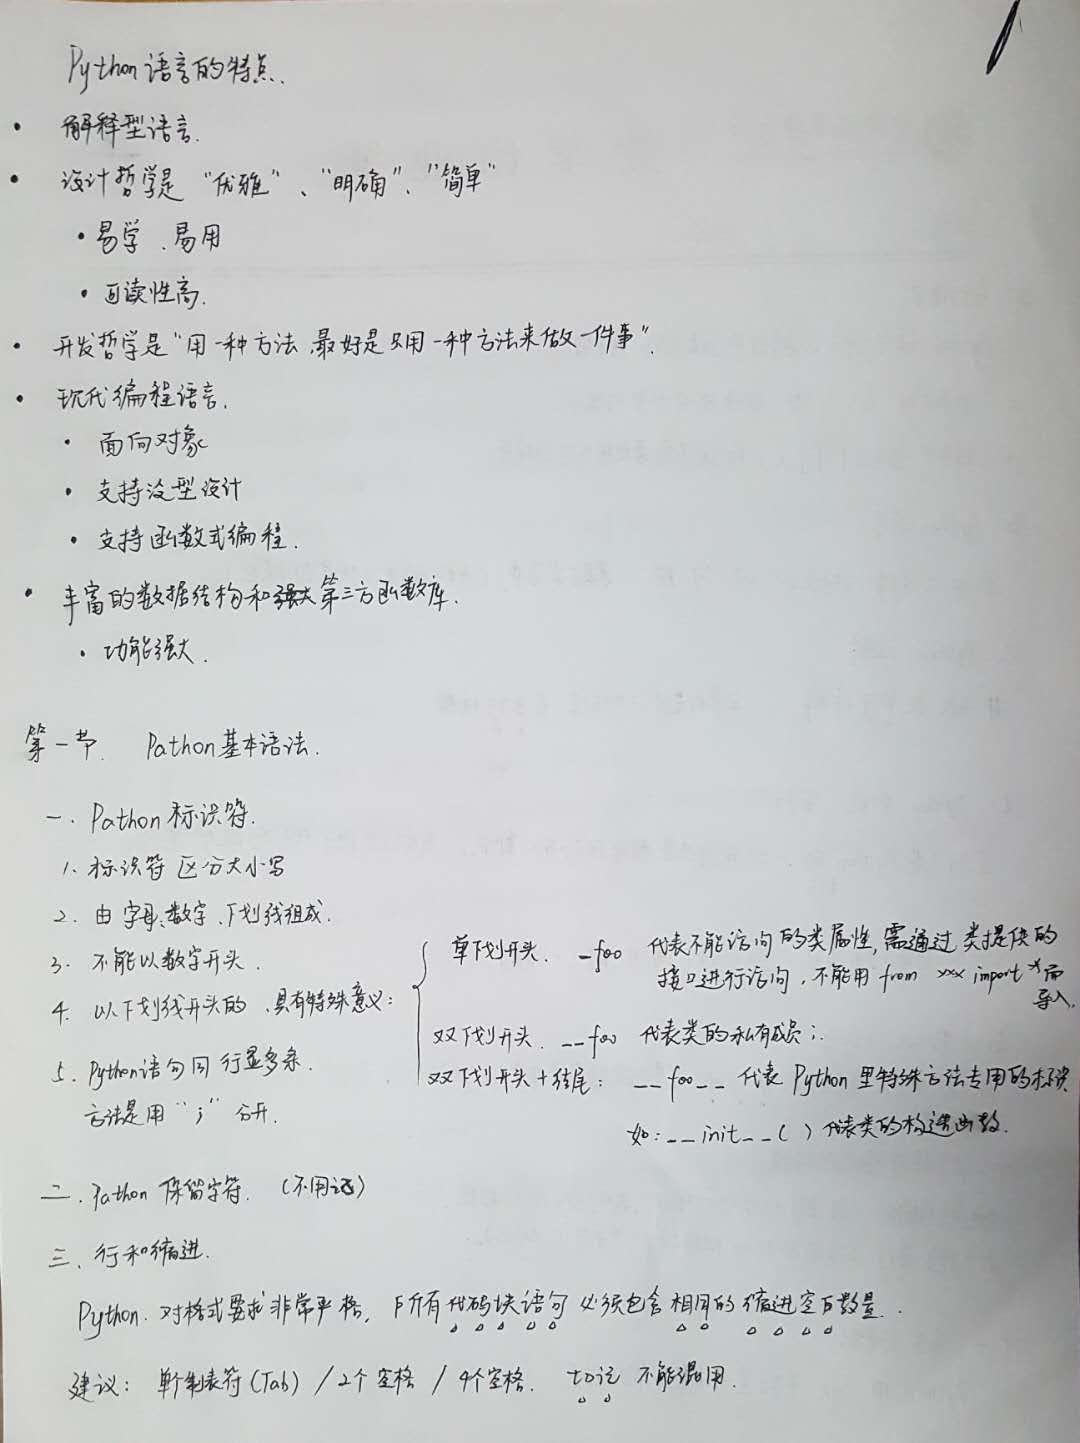 Python语言的特点.
• 解释型语言.
• 设计哲学是 “优雅”、“明确”、“简单”
• 易学、易用
• 可读性高.
• 开发哲学是“用一种方法,最好是只用一种方法来做一件事”.
• 现代编程语言.
• 面向对象
• 支持泛型设计
• 支持函数式编程.
• 丰富的数据结构和强大第三方函数库.
• 功能强大.
第一节. Pathon基本语法.
一. Pathon标识符.
1. 标识符 区分大小写
2. 由字母、数字、下划线组成.
3. 不能以数字开头.
4. 以下划线开头的,具有特殊意义:
单下划开头. _foo 代表不能访问的类属性,需通过类提供的
接口进行访问,不能用 from xxx import *而
导入.
双下划开头. __foo 代表类的私有成员;.
双下划开头+结尾: __foo__ 代表 Python 里特殊方法专用的标识
如: __init__( ) 代表类的构造函数.
5. Python语句同一行显多条.
方法是用“;”分开.
二. Pathon 保留字符. (不用记)
三. 行和缩进.
Python. 对格式要求非常严格, 所有代码块语句必须包含相同的缩进空白数量.
建议: 单个制表符(Tab) / 2个空格 / 4个空格. 切记 不能混用.